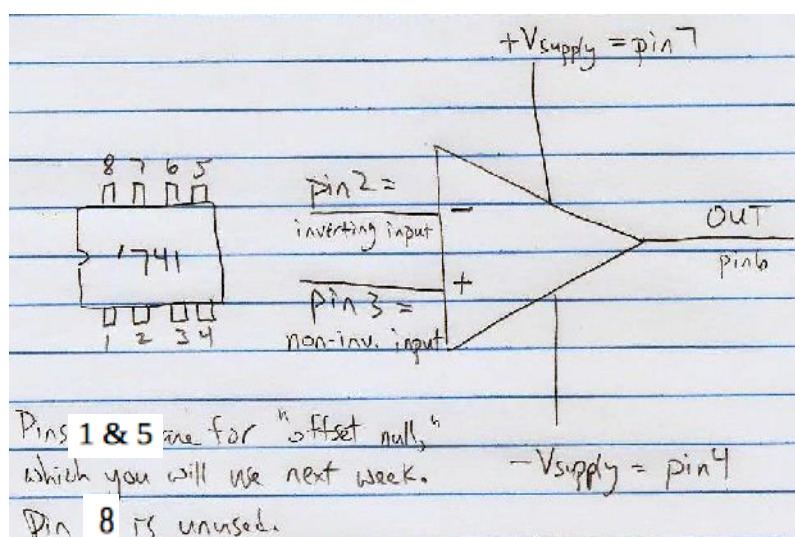 +Vsupply = pin 7
8 7 6 5
'741
1 2 3 4
pin 2 =
inverting input
-
+
pin 3 =
non-inv. input
OUT
pin 6
-Vsupply = pin 4
Pins 1 & 5 are for "offset null,"
which you will use next week.
Pin 8 is unused.